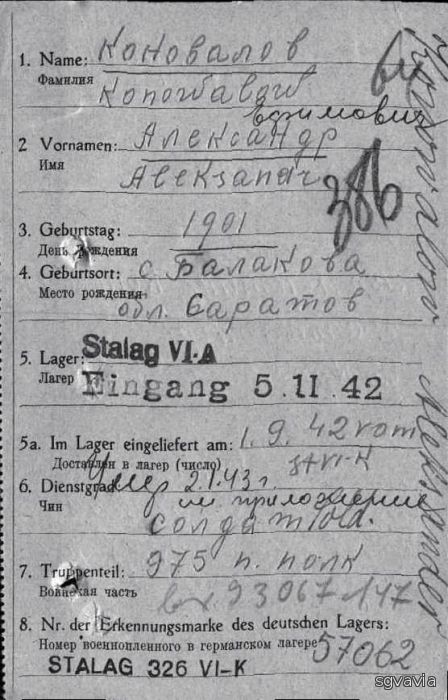 1. Name: Коновалов
Фамилия
Ефимович
2 Vornamen: Александр
Имя
3. Geburtstag: 1901
День рождения
4. Geburtsort: с Балакова
Место рождения
обл. Саратов
5. Lager: Stalag VI-A
Лагер Eingang 5.11.42
5a. Im Lager eingeliefert am: 1.9.42 vom
Доставлен в лагер (число)
6. Dienstgrad: умер 2.1.43 г.
Чин см приложение
солдат
7. Truppenteil: 975 п. полк
Воинская часть
8. Nr. der Erkennungsmarke des deutschen Lagers:
Номер военнопленного в германском лагере 57062
STALAG 326 VI-K
386
Konovalow Aleksander
sgvavia